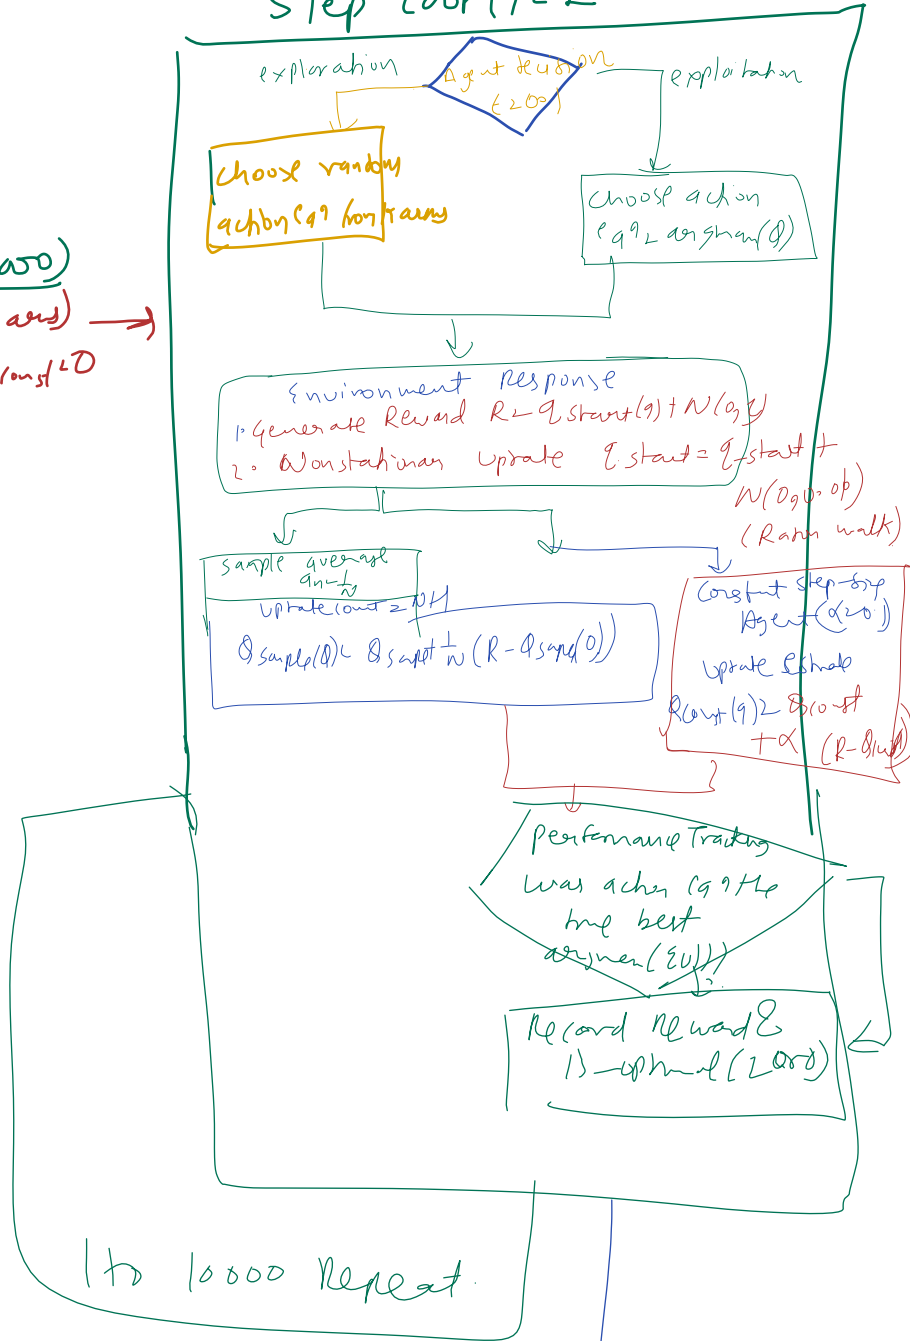 Step count = 2
exploration
Agent decision
exploitation
choose random
action 'a' from arms
choose action
'a' = argmax(Q)
aro)
arms)
const = 0
Environment Response
1. Generate Reward R = q_start(a) + N(0,1)
2. Nonstationary update q_start = q_start +
N(0,0.01)
(Random walk)
sample average
an = 1/N
update count = N+1
Qsample(a) = Qsample + 1/N (R - Qsample(a))
Constant step-size
Agent (α=0.1)
update Estimate
Qconst(a) = Qconst
+ α (R - Qconst)
Performance Tracking
was action 'a' the
true best
Record Reward &
is-optimal (1 or 0)
1 to 10000 Repeat